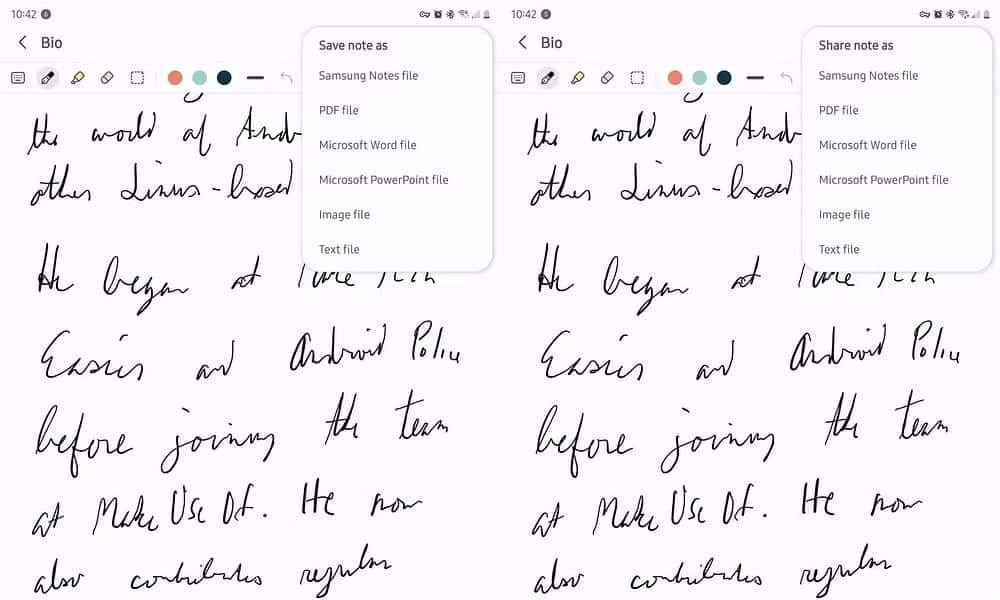 10:42
Bio
Save note as
Samsung Notes file
PDF file
Microsoft Word file
Microsoft PowerPoint file
Image file
Text file
the world of Andr
other Linux-based
He began at Make Tech
Easier and Android Police
before joining the team
at Make Use Of. He now
also contributes regular
10:42
Bio
Share note as
Samsung Notes file
PDF file
Microsoft Word file
Microsoft PowerPoint file
Image file
Text file
the world of Andr
other Linux-based
He began at Make Tech
Easier and Android Police
before joining the team
at Make Use Of. He now
also contributes regular